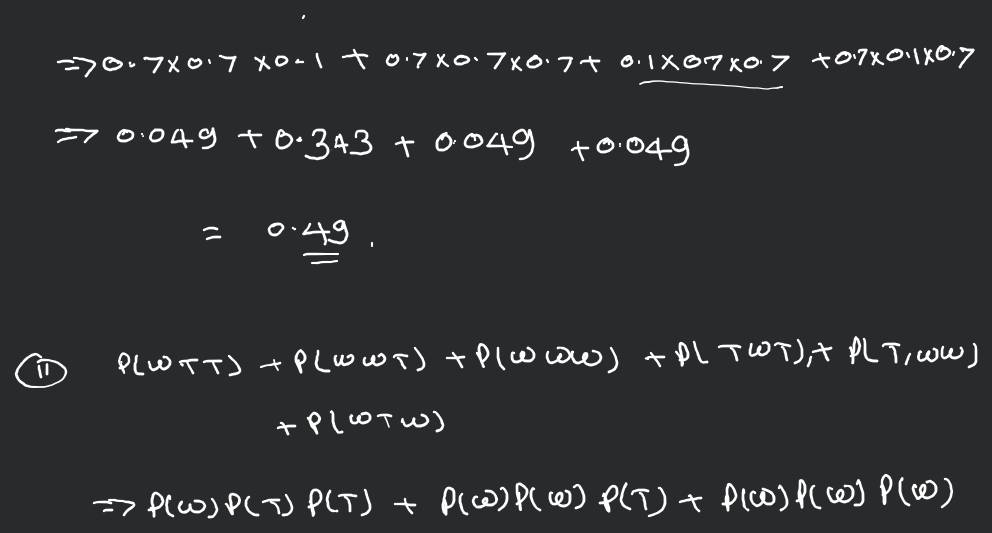 => 0.7x0.7 x0.1 + 0.7x0.7x0.7+ 0.1x07x0.7 +0.7x0.1x0.7
=> 0.049 +0.343 + 0.049 +0.049
= 0.49.
(ii) P(WTT) + P(WWT) + P(W WW) + P( TWT), + P(T,WW)
+ P(WTW)
=> P(W)P(T) P(T) + P(W)P(W) P(T) + P(W)P(W) P(W)